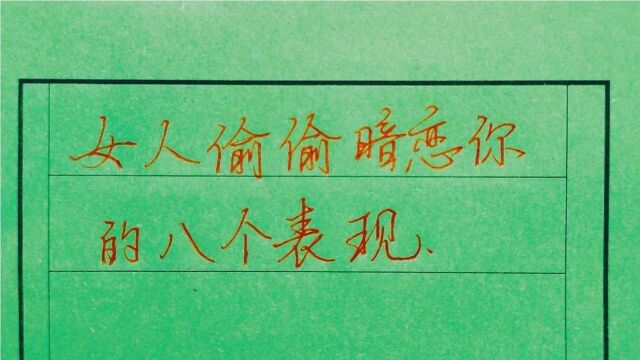 女人偷偷暗恋你
的八个表现.